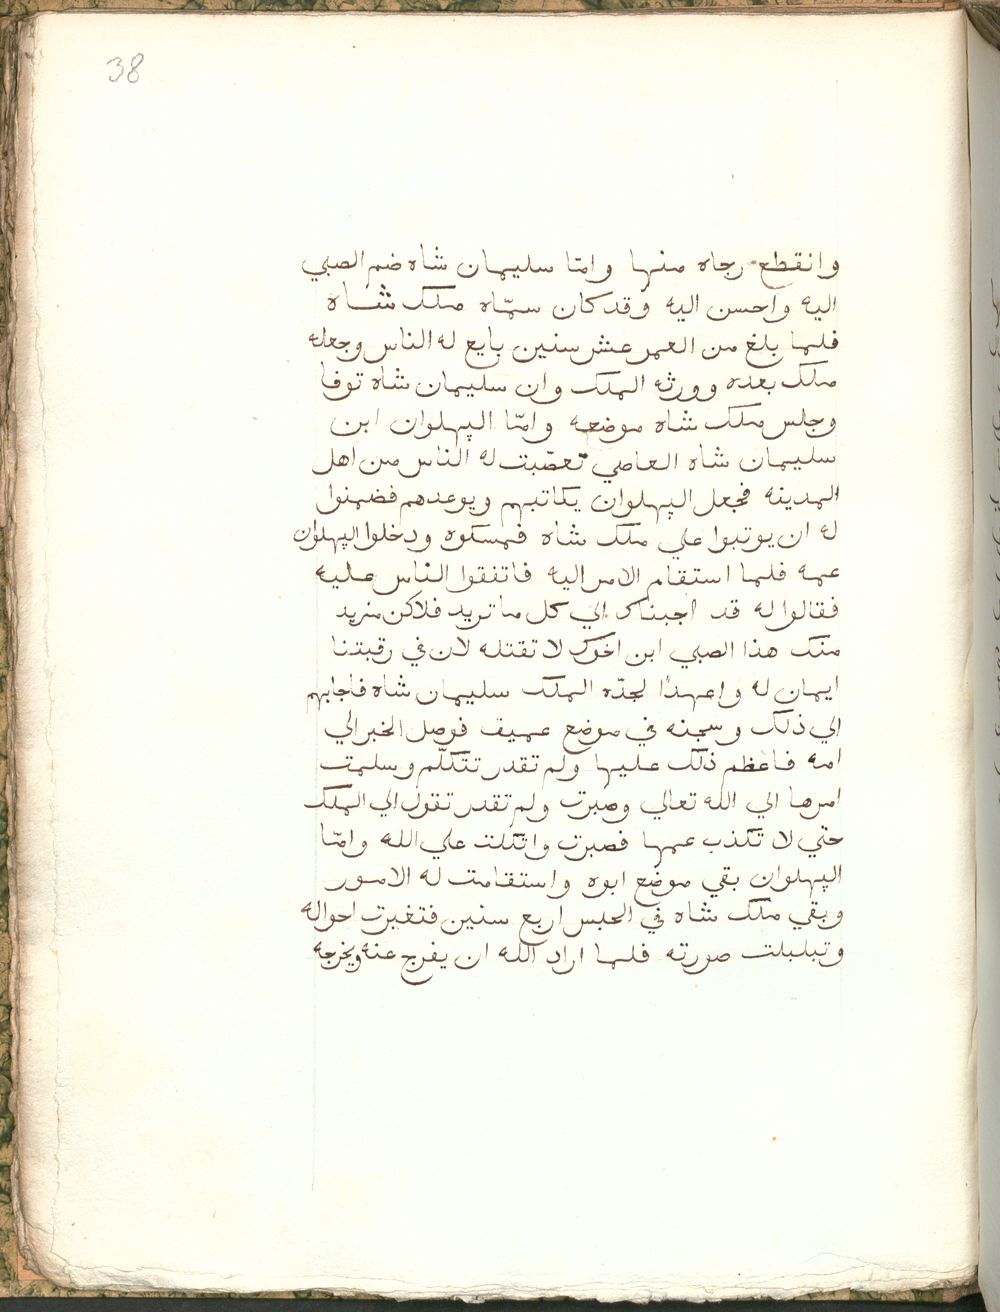 38
وانقطع رجاه منها وامّا سليمان شاه ضم الصبي
اليه واحسن اليه وقد كان سمّاه ملك شاه
فلما بلغ من العمر عشر سنين بايع له الناس وجعله
ملك بعده وورثه الملك وان سليمان شاه توفا
وجلس ملك شاه موضعه وامّا البهلوان ابن
سليمان شاه العاصي تعصّبت له الناس من اهل
المدينه فجعل البهلوان يكاتبهم ويوعدهم فضمنوا
له ان يوتبوا علي ملك شاه فمسكوه ودخلوا البهلوان
عمه فلما استقام الامر اليه فاتفقوا الناس عليه
فقالوا له قد اجبناك الي كل ما تريد فلاكن نريد
منك هذا الصبي ابن اخوك لا تقتله لان في رقبتنا
ايمان له واعهدًا لجدّه الملك سليمان شاه فاجابهم
الي ذلك وسجنه في موضع عميق فوصل الخبر الي
امه فاعظم ذلك عليها ولم تقدر تتكلّم وسلمت
امرها الي الله تعالي وصبرت ولم تقدر تقول الي الملك
حتي لا تكذب عمها فصبرت واتكلت علي الله وامّا
البهلوان بقي موضع ابوه واستقامت له الامور
وبقي ملك شاه في الحبس اربع سنين فتغيرت احواله
وتبلبلت صورته فلما اراد الله ان يفرج عنه ويخرجه